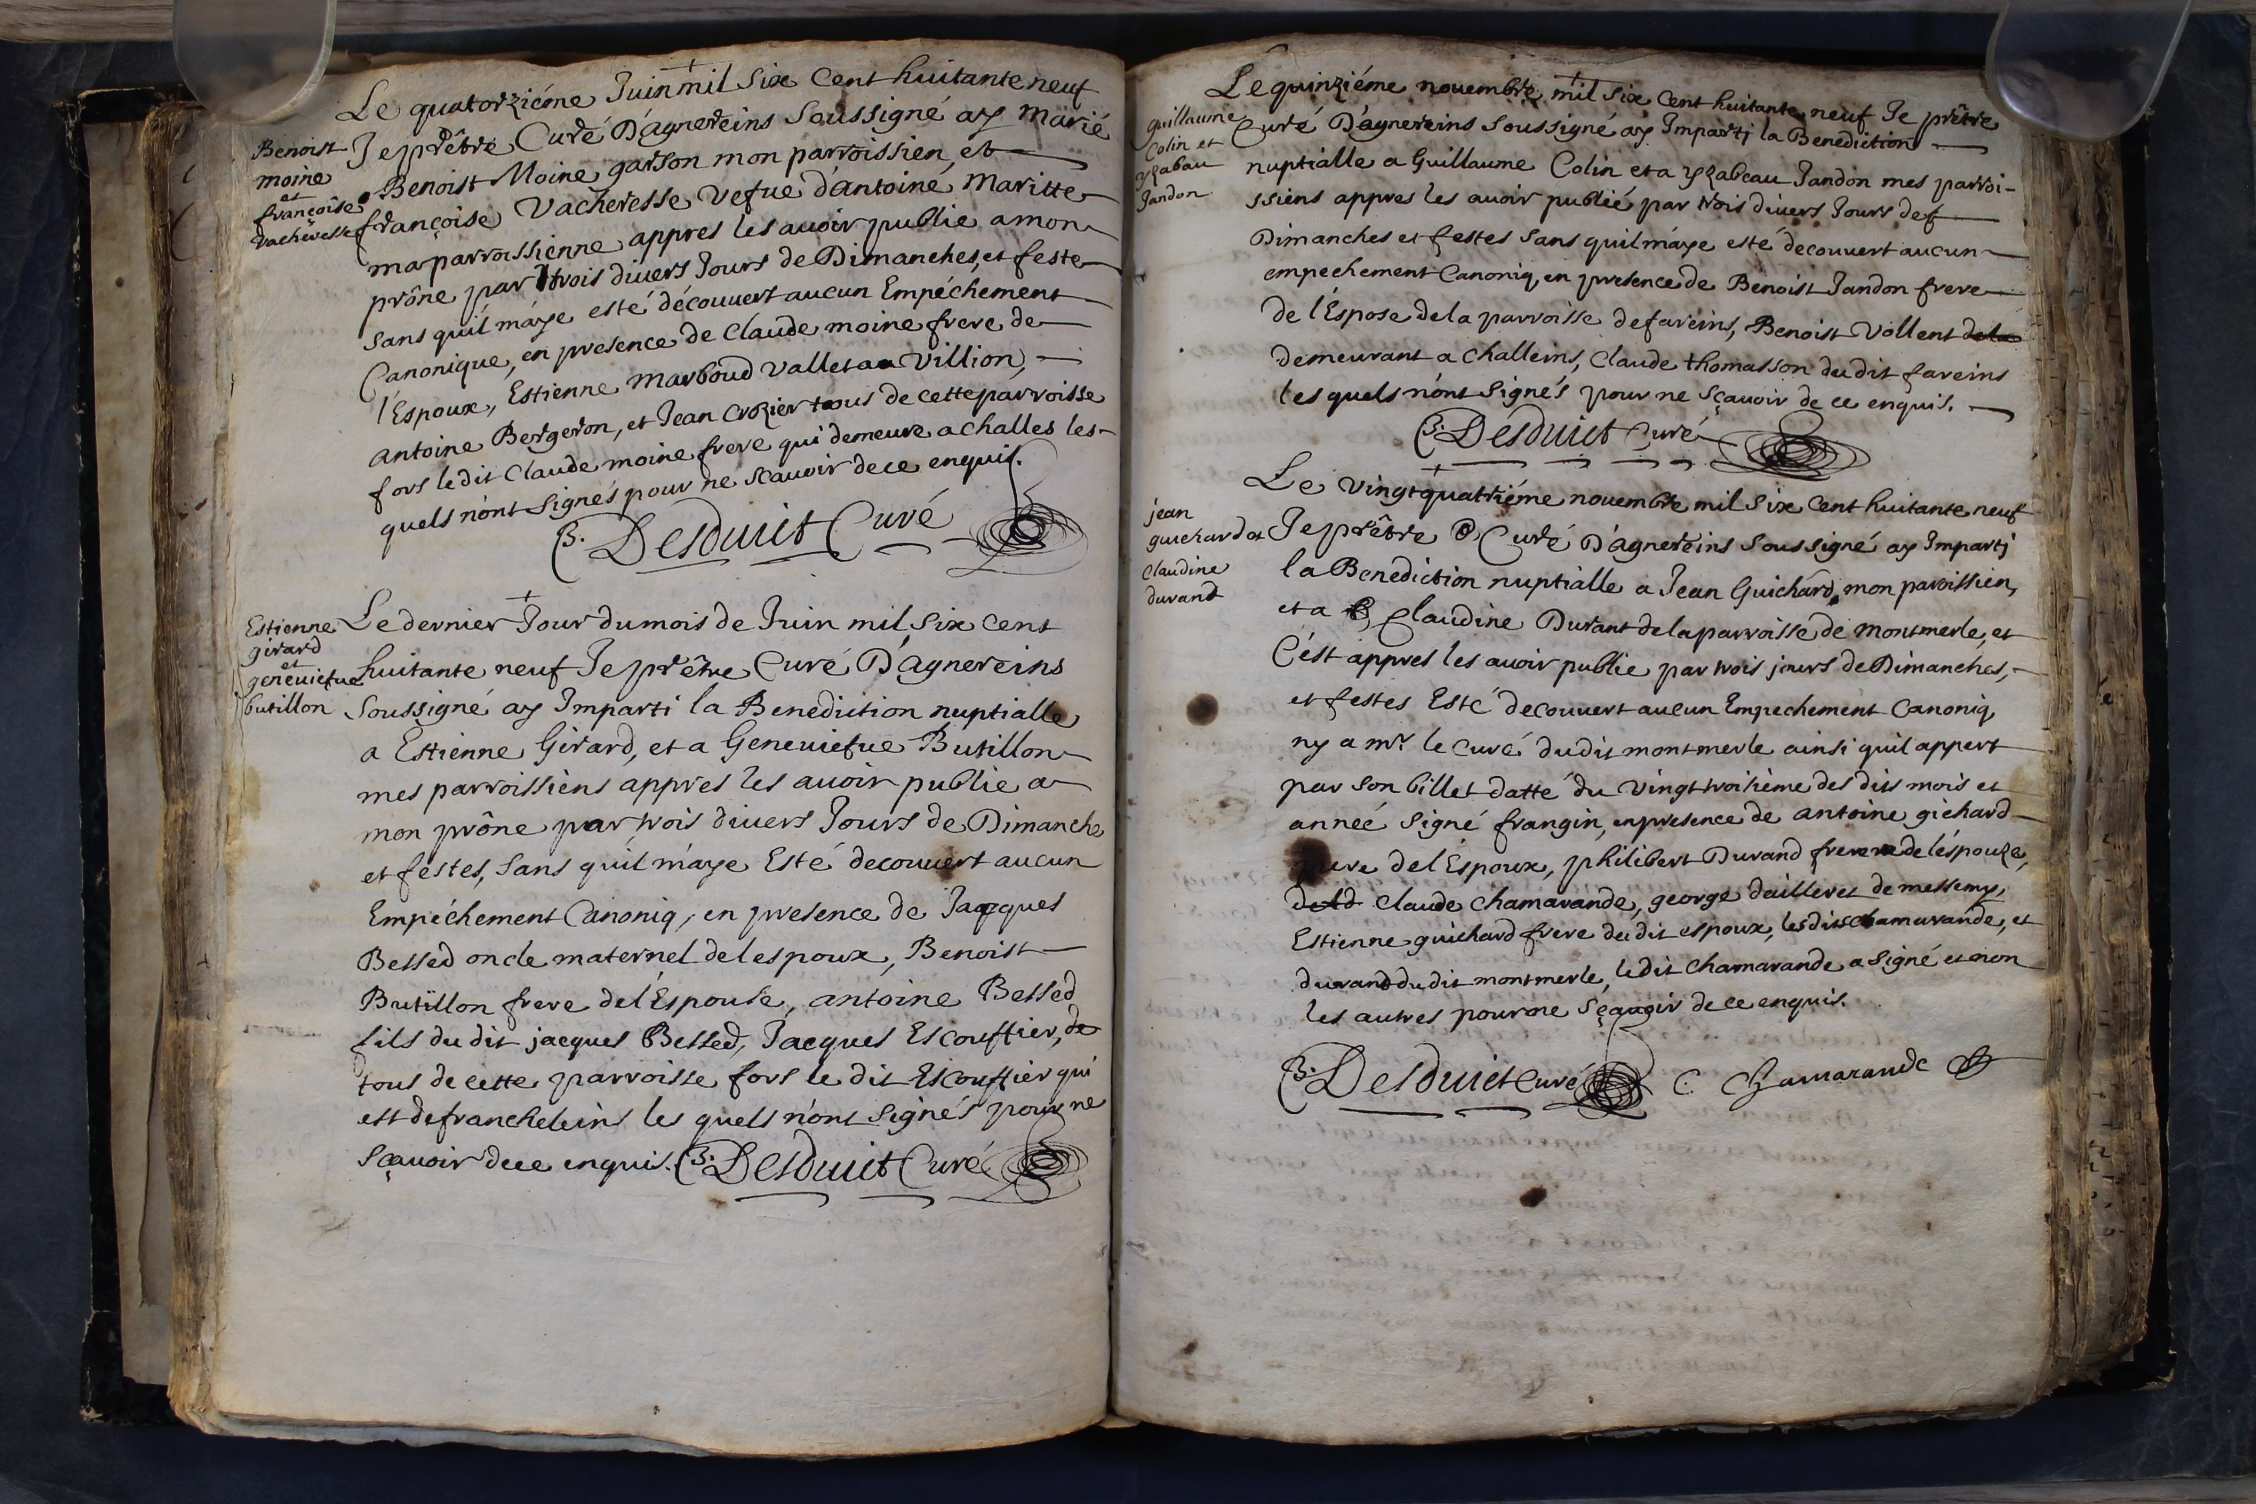 Le quatorziéme Juin mil Six Cent huitante neuf
Benoist
moine
et
françoise
vacheresse
Je prêtre Curé D'agnereins Soussigné ay Marié
Benoist Moine garson mon parroissien, et
françoise Vacheresse Vefue d'antoine Maritte
ma parroissienne appres les auoir publie a mon
prône par trois divers Jours de Dimanches, et feste
sans quil m'aye esté découuert aucun Empéchement
Canonique, en presence de Claude moine frere de
l'Espoux, Estienne Marboud Vallet au Villion,
antoine Bergeron, et Jean Crozier tous de cette parroisse
fors le dit Claude moine frere qui demeure a challes les
quels n'ont signés pour ne scauoir de ce enquis.
B. Desduict Curé
Estienne
girard
et
geneuiefue
butillon
Le dernier Jour du mois de Juin mil Six Cent
huitante neuf Je prêtre Curé D'agnereins
Soussigné ay Imparti la Benediction nuptialle
a Estienne Girard, et a Geneuiefue Butillon
mes parroissiens appres les auoir publie a
mon prône par trois divers Jours de Dimanche
et festes, sans qu'il m'aye Esté decouuert aucun
Empéchement Canoniq, en presence de Jacques
Bessed oncle maternel de lespoux, Benoist
Butillon frere de l'Espouse, antoine Bessed
fils du dit jacques Bessed, Jacques Escoffier, de
tous de cette parroisse fors le dit Escoffier qui
est de francheleins les quels n'ont signés pour ne
sçauoir de ce enquis. B. Desduict Curé
Le quinziéme nouembre mil Six Cent huitante neuf Je prêtre
guillaume
Colin et
yzabau
Jandon
Curé D'agnereins Soussigné ay Imparti la Benediction
nuptialle a Guillaume Colin et a yzabeau Jandon mes parroi-
ssiens appres les auoir publié par trois divers Jours de
Dimanches et festes sans quil m'aye esté decouuert aucun
empechement Canoniq, en presence de Benoist Jandon frere
de l'Espose de la parroisse de fareins, Benoist Vollent de la
demeurant a Challeins, Claude thomasson du dit fareins
les quels n'ont Signés pour ne sçauoir de ce enquis.
B. Desduict Curé
jean
guichard et
Claudine
durand
Le vingt quatriéme nouembre mil Six Cent huitante neuf
Je prêtre Curé D'agnereins Soussigné ay Imparti
la Benediction nuptialle a Jean Guichard, mon paroissien,
et a Claudine Durant de la parroisse de montmerle, et
C'est appres les auoir publie par trois jours de Dimanches,
et festes Esté decouuert aucun Empechement Canoniq,
ny a mr. le Curé du dit montmerle ainsi qu'il appert
par son billet datté du vingt troisieme des dits mois et
année signé frangin, en presence de antoine gichard
de l'Espoux, philibert Durand frere de l'éspouze,
Claude Chamarande, george dailleret de messemy,
Estienne guichard frere du dit espoux, les dits Chamarande, et
durand du dit montmerle, le dit Chamarande a signé et non
les autres pour ne sçauoir de ce enquis.
B. Desduict Curé C. Chamarande